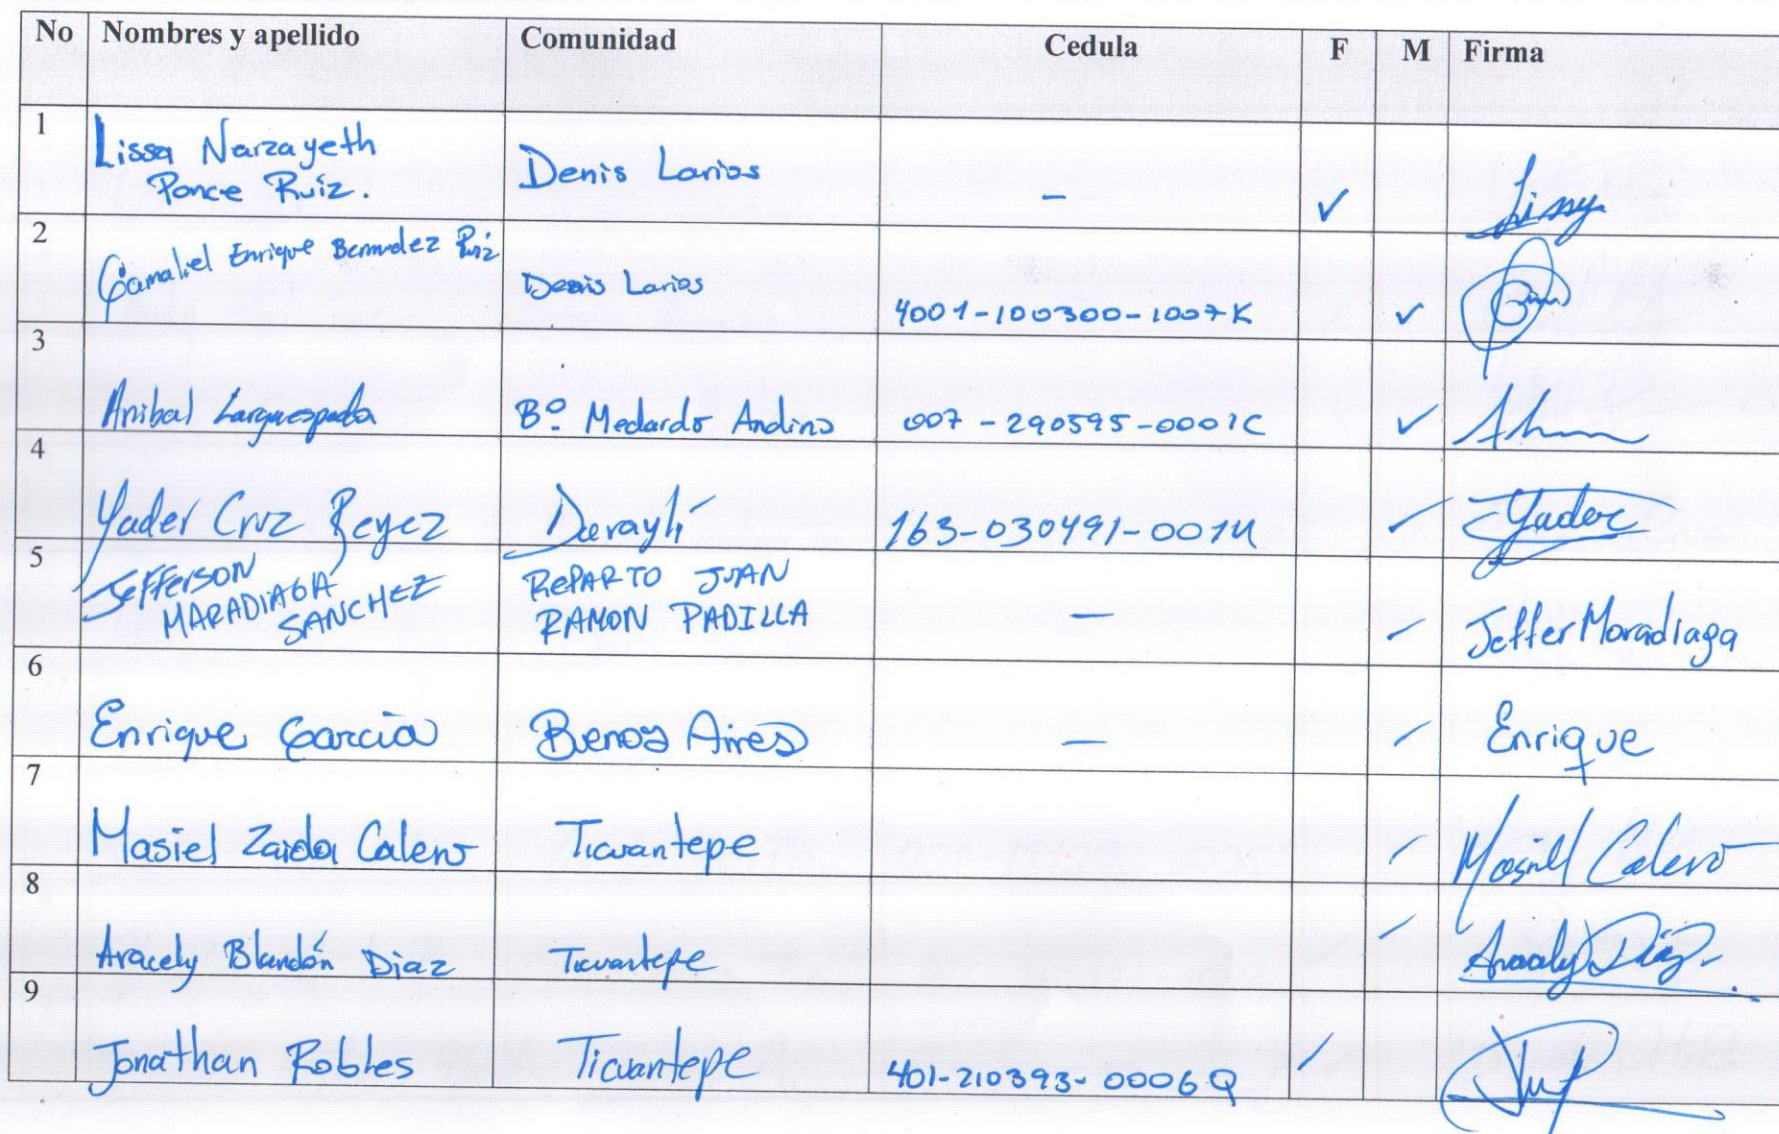 No Nombres y apellido Comunidad Cedula F M Firma
1
Lissa Narzayeth
Ponce Ruiz. Denis Larios - ✓ Lissy
2
Gamaliel Enrique Bermudez Ruiz Denis Larios 4001-100300-1007K ✓
3
Anibal Larguespada Bº. Medardo Andino 007-290595-0001C ✓
4
Yader Cruz Reyez Derayli 163-030491-001U ✓ Yader
5
JEFFERSON
MARADIAGA
SANCHEZ REPARTO JUAN
RAMON PADILLA - ✓ JefferMaradiaga
6
Enrique Garcia Buenos Aires - ✓ Enrique
7
Masiel Zaida Calero Ticuantepe ✓ Masiell Calero
8
Aracely Blandón Diaz Ticuantepe ✓ Aracely Diaz
9
Jonathan Robles Ticuantepe 401-210393-0006Q ✓